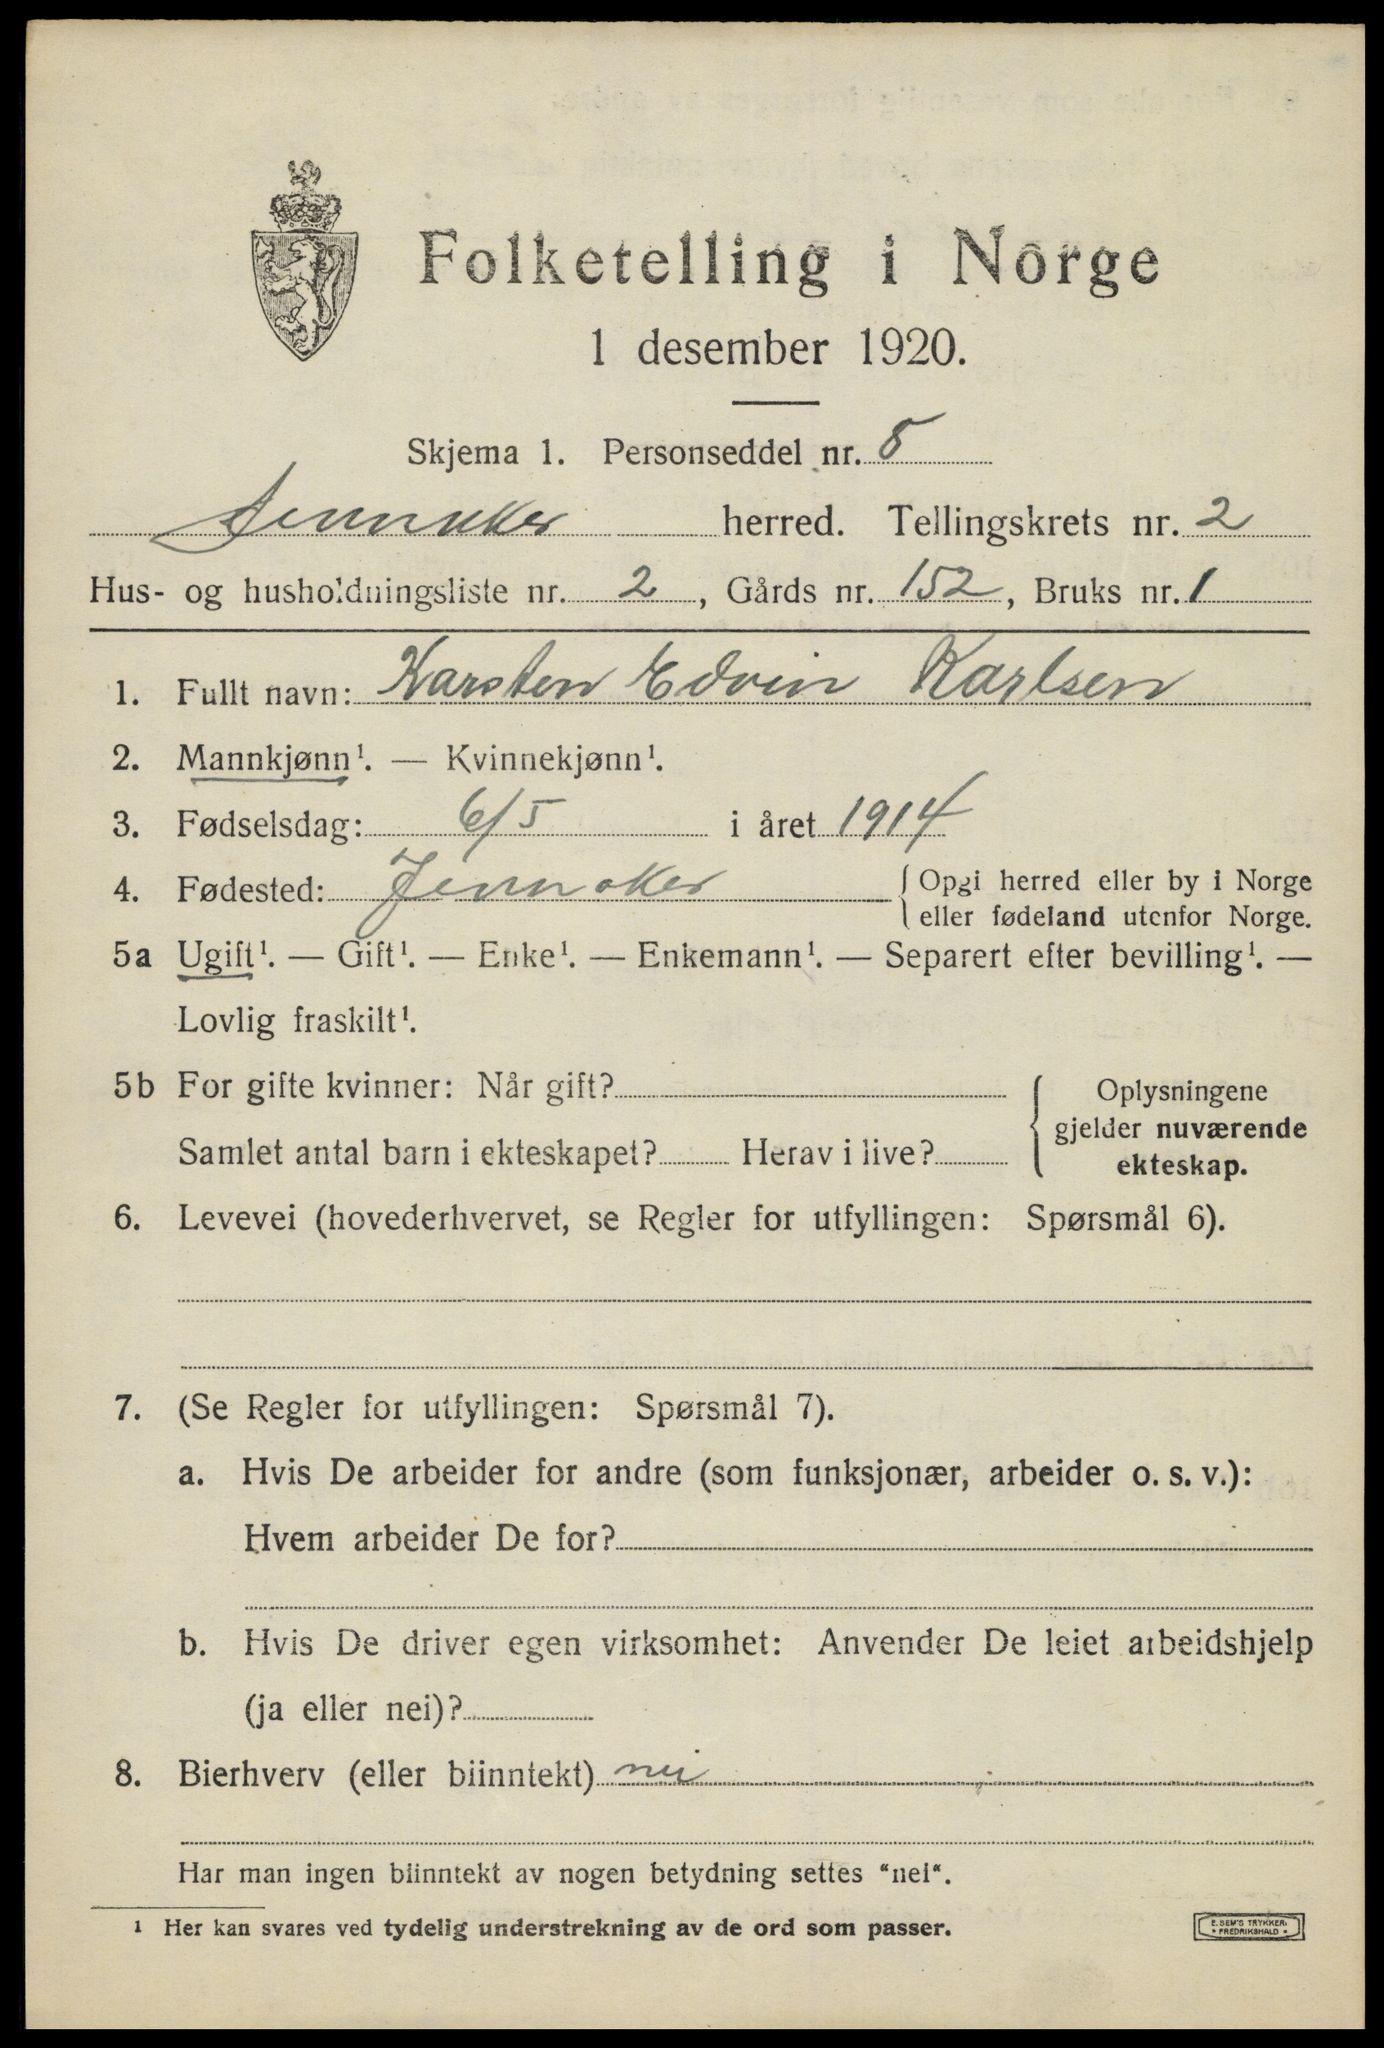 Folketelling i Norge
1 desember 1920.
Skjema 1. Personseddel nr. 8
herred. Tellingskrets nr. 2
Hus- og husholdningsliste nr. 2, Gårds nr. 152, Bruks nr. 1
1. Fullt navn: Karsten Edvin Karlsen
2. Mannkjønn¹. — Kvinnekjønn¹.
3. Fødselsdag: 6/5 i året 1914
4. Fødested: { Opgi herred eller by i Norge
eller fødeland utenfor Norge.
5a Ugift¹. — Gift¹. — Enke¹. — Enkemann¹. — Separert efter bevilling¹. —
Lovlig fraskilt¹.
5b For gifte kvinner: Når gift?
Samlet antal barn i ekteskapet? Herav i live?
{ Oplysningene
gjelder nuværende
ekteskap.
6. Levevei (hovederhvervet, se Regler for utfyllingen: Spørsmål 6).
7. (Se Regler for utfyllingen: Spørsmål 7).
a. Hvis De arbeider for andre (som funksjonær, arbeider o. s. v.):
Hvem arbeider De for?
b. Hvis De driver egen virksomhet: Anvender De leiet arbeidshjelp
(ja eller nei)?
8. Bierhverv (eller biinntekt) nei
Har man ingen biinntekt av nogen betydning settes "nei".
¹ Her kan svares ved tydelig understrekning av de ord som passer.
E. SEM'S TRYKKERI
• FREDRIKSHALD •